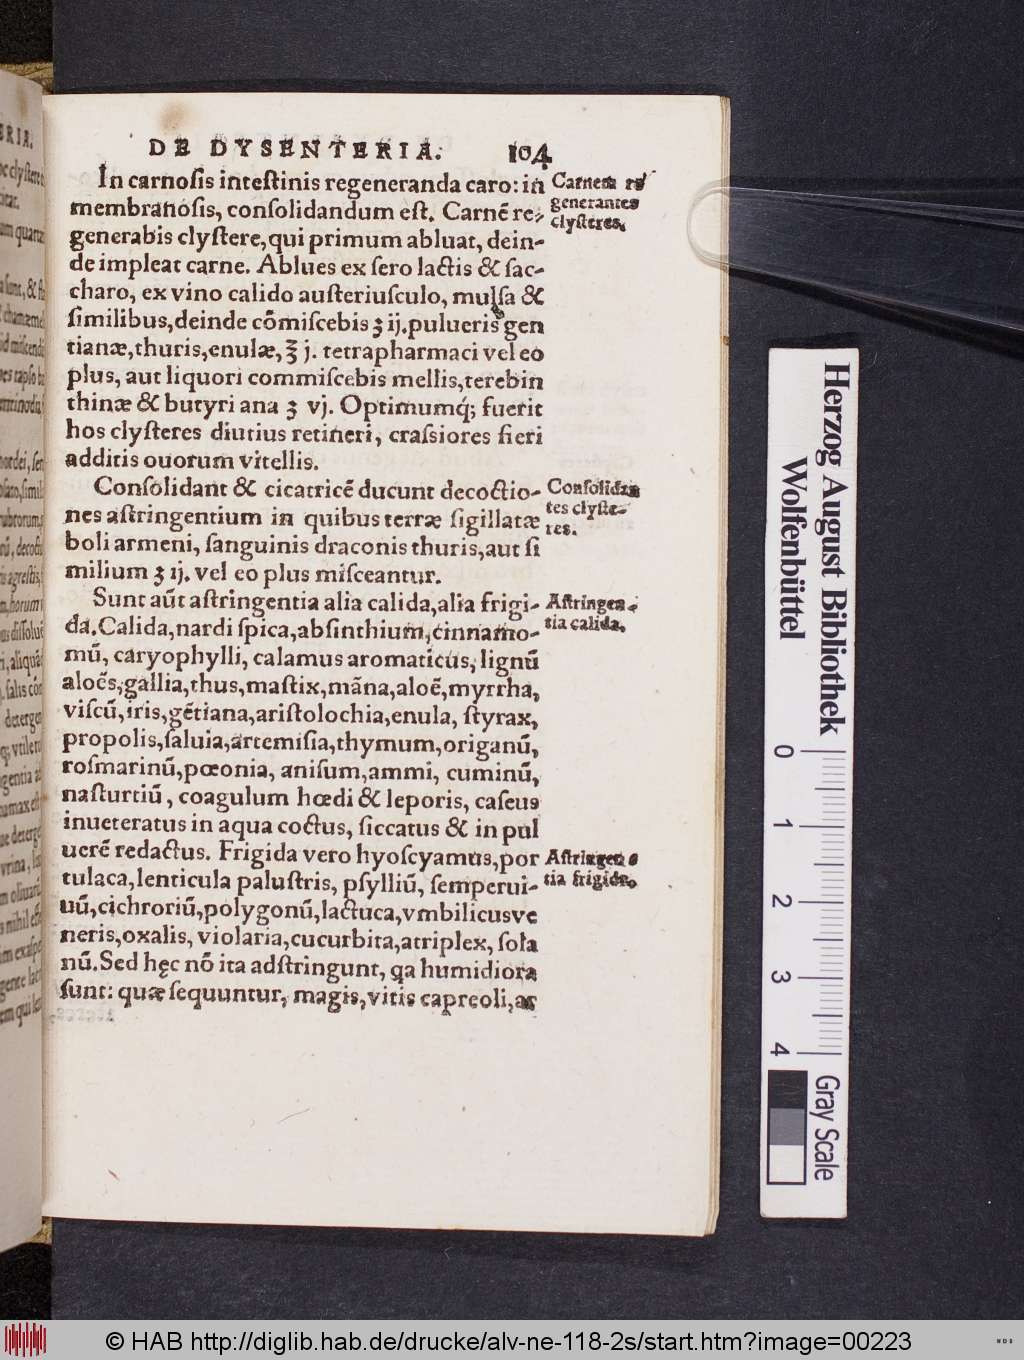 DE DYSENTERIA. 104
In carnosis intestinis regeneranda caro: in
membranosis, consolidandum est. Carnē re-
generabis clystere, qui primum abluat, dein-
de impleat carne. Ablues ex sero lactis & sac-
charo, ex vino calido austeriusculo, mulsa &
similibus, deinde cōmiscebis ʒ ij. pulueris gen
tianæ, thuris, enulæ, ℥ j. tetrapharmaci vel eo
plus, aut liquori commiscebis mellis, terebin
thinæ & butyri ana ʒ vj. Optimumq́; fuerit
hos clysteres diutius retineri, crassiores fieri
additis ouorum vitellis.
Carnem re
generantes
clysteres.
Consolidant & cicatricē ducunt decoctio-
nes astringentium in quibus terræ sigillatæ
boli armeni, sanguinis draconis thuris, aut si
milium ʒ ij. vel eo plus misceantur.
Consolidan
tes clyste-
res.
Sunt aūt astringentia alia calida, alia frigi-
da. Calida, nardi spica, absinthium, cinnamo-
mū, caryophylli, calamus aromaticus, lignū
aloës, gallia, thus, mastix, māna, aloë, myrrha,
viscū, iris, gētiana, aristolochia, enula, styrax,
propolis, saluia, artemisia, thymum, origanū,
rosmarinū, pœonia, anisum, ammi, cuminū,
nasturtiū, coagulum hœdi & leporis, caseus
inueteratus in aqua coctus, siccatus & in pul
uerē redactus. Frigida vero hyoscyamus, por
tulaca, lenticula palustris, psylliū, semperui-
uū, cichroriū, polygonū, lactuca, vmbilicus ve
neris, oxalis, violaria, cucurbita, atriplex, sola
nū. Sed hęc nō ita adstringunt, qa humidiora
sunt: quæ sequuntur, magis, vitis capreoli, ac
Astringen-
tia calida.
Astringen
tia frigida.
Herzog August Bibliothek
Wolfenbüttel
0 1 2 3 4
Gray Scale
© HAB http://diglib.hab.de/drucke/alv-ne-118-2s/start.htm?image=00223